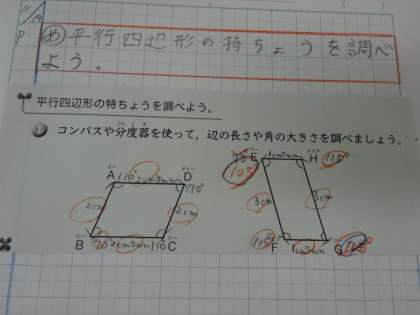 11/19
P
め 平行四辺形の持ちょうを調べ
よう。
平行四辺形の特ちょうを調べよう。
1 コンパスや分度器を使って、辺の長さや角の大きさを調べましょう。
A 110° 2cm3mm D
70°
2cm 2cm
B 70° 2cm3mm 110° C
E 1cm5mm H 115°
105
3cm 3cm
115° F 1cm5mm G